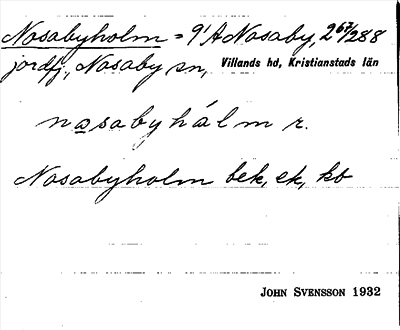 Nosabyholm = 9¹ A Nosaby, 2 67/288
jordfj., Nosaby sn, Villands hd, Kristianstads län
nosabyhálm r.
Nosabyholm bek, ek, kb
JOHN SVENSSON 1932